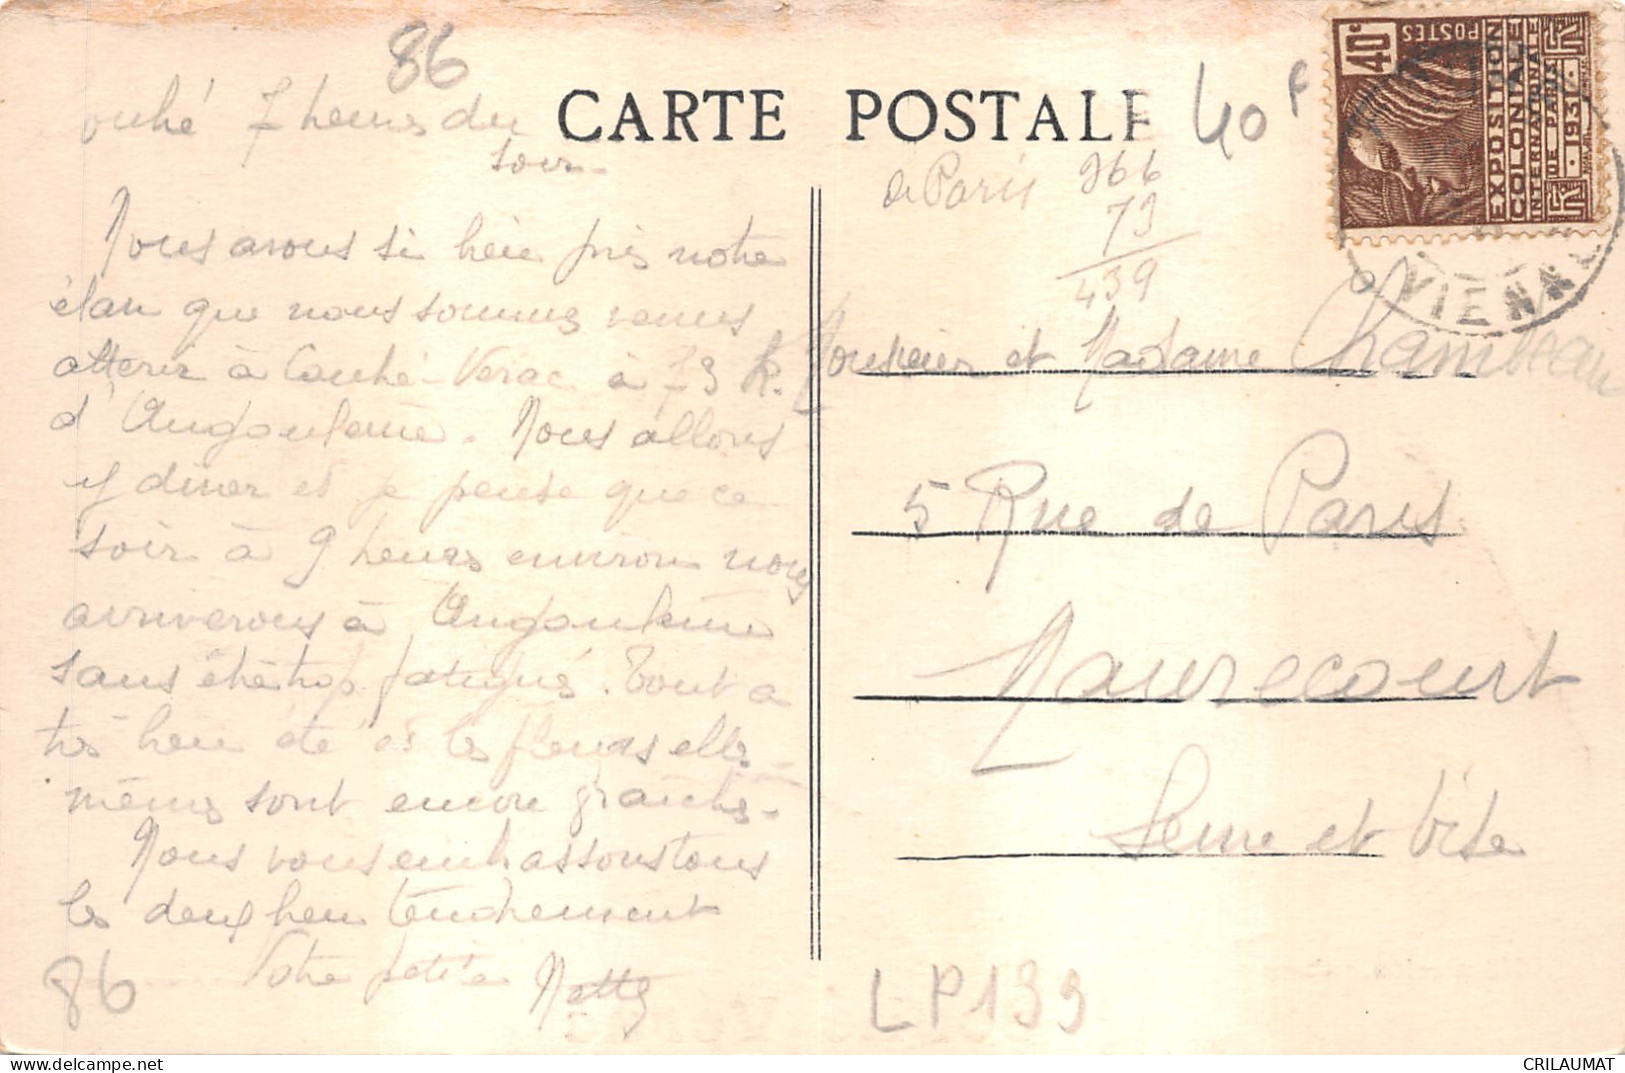 86
ouhé 7 heures du
soir
CARTE POSTALE
40 F
40c
POSTES
EXPOSITION
COLONIALE
INTERNATIONALE
DE PARIS
1931
VIENNE
de Paris
366
73
439
Nous avons si bien pris notre
élan que nous sommes venus
atterir à Couhé-Verac à 73 K.
d'Angoulême. Nous allons
y diner et je pense que ce
soir à 9 heures environ nous
arriverons à Angoulême
sans être trop fatigués. Tout a
très bien été et les fleurs elles-
mêmes sont encore fraiches.
Nous vous embrassons tous
les deux bien tendrement
Votre petite Netty
Monsieur et Madame Chambeau
5 Rue de Paris
Maurecourt
Seine et Oise
86
LP139
CRILAUMAT